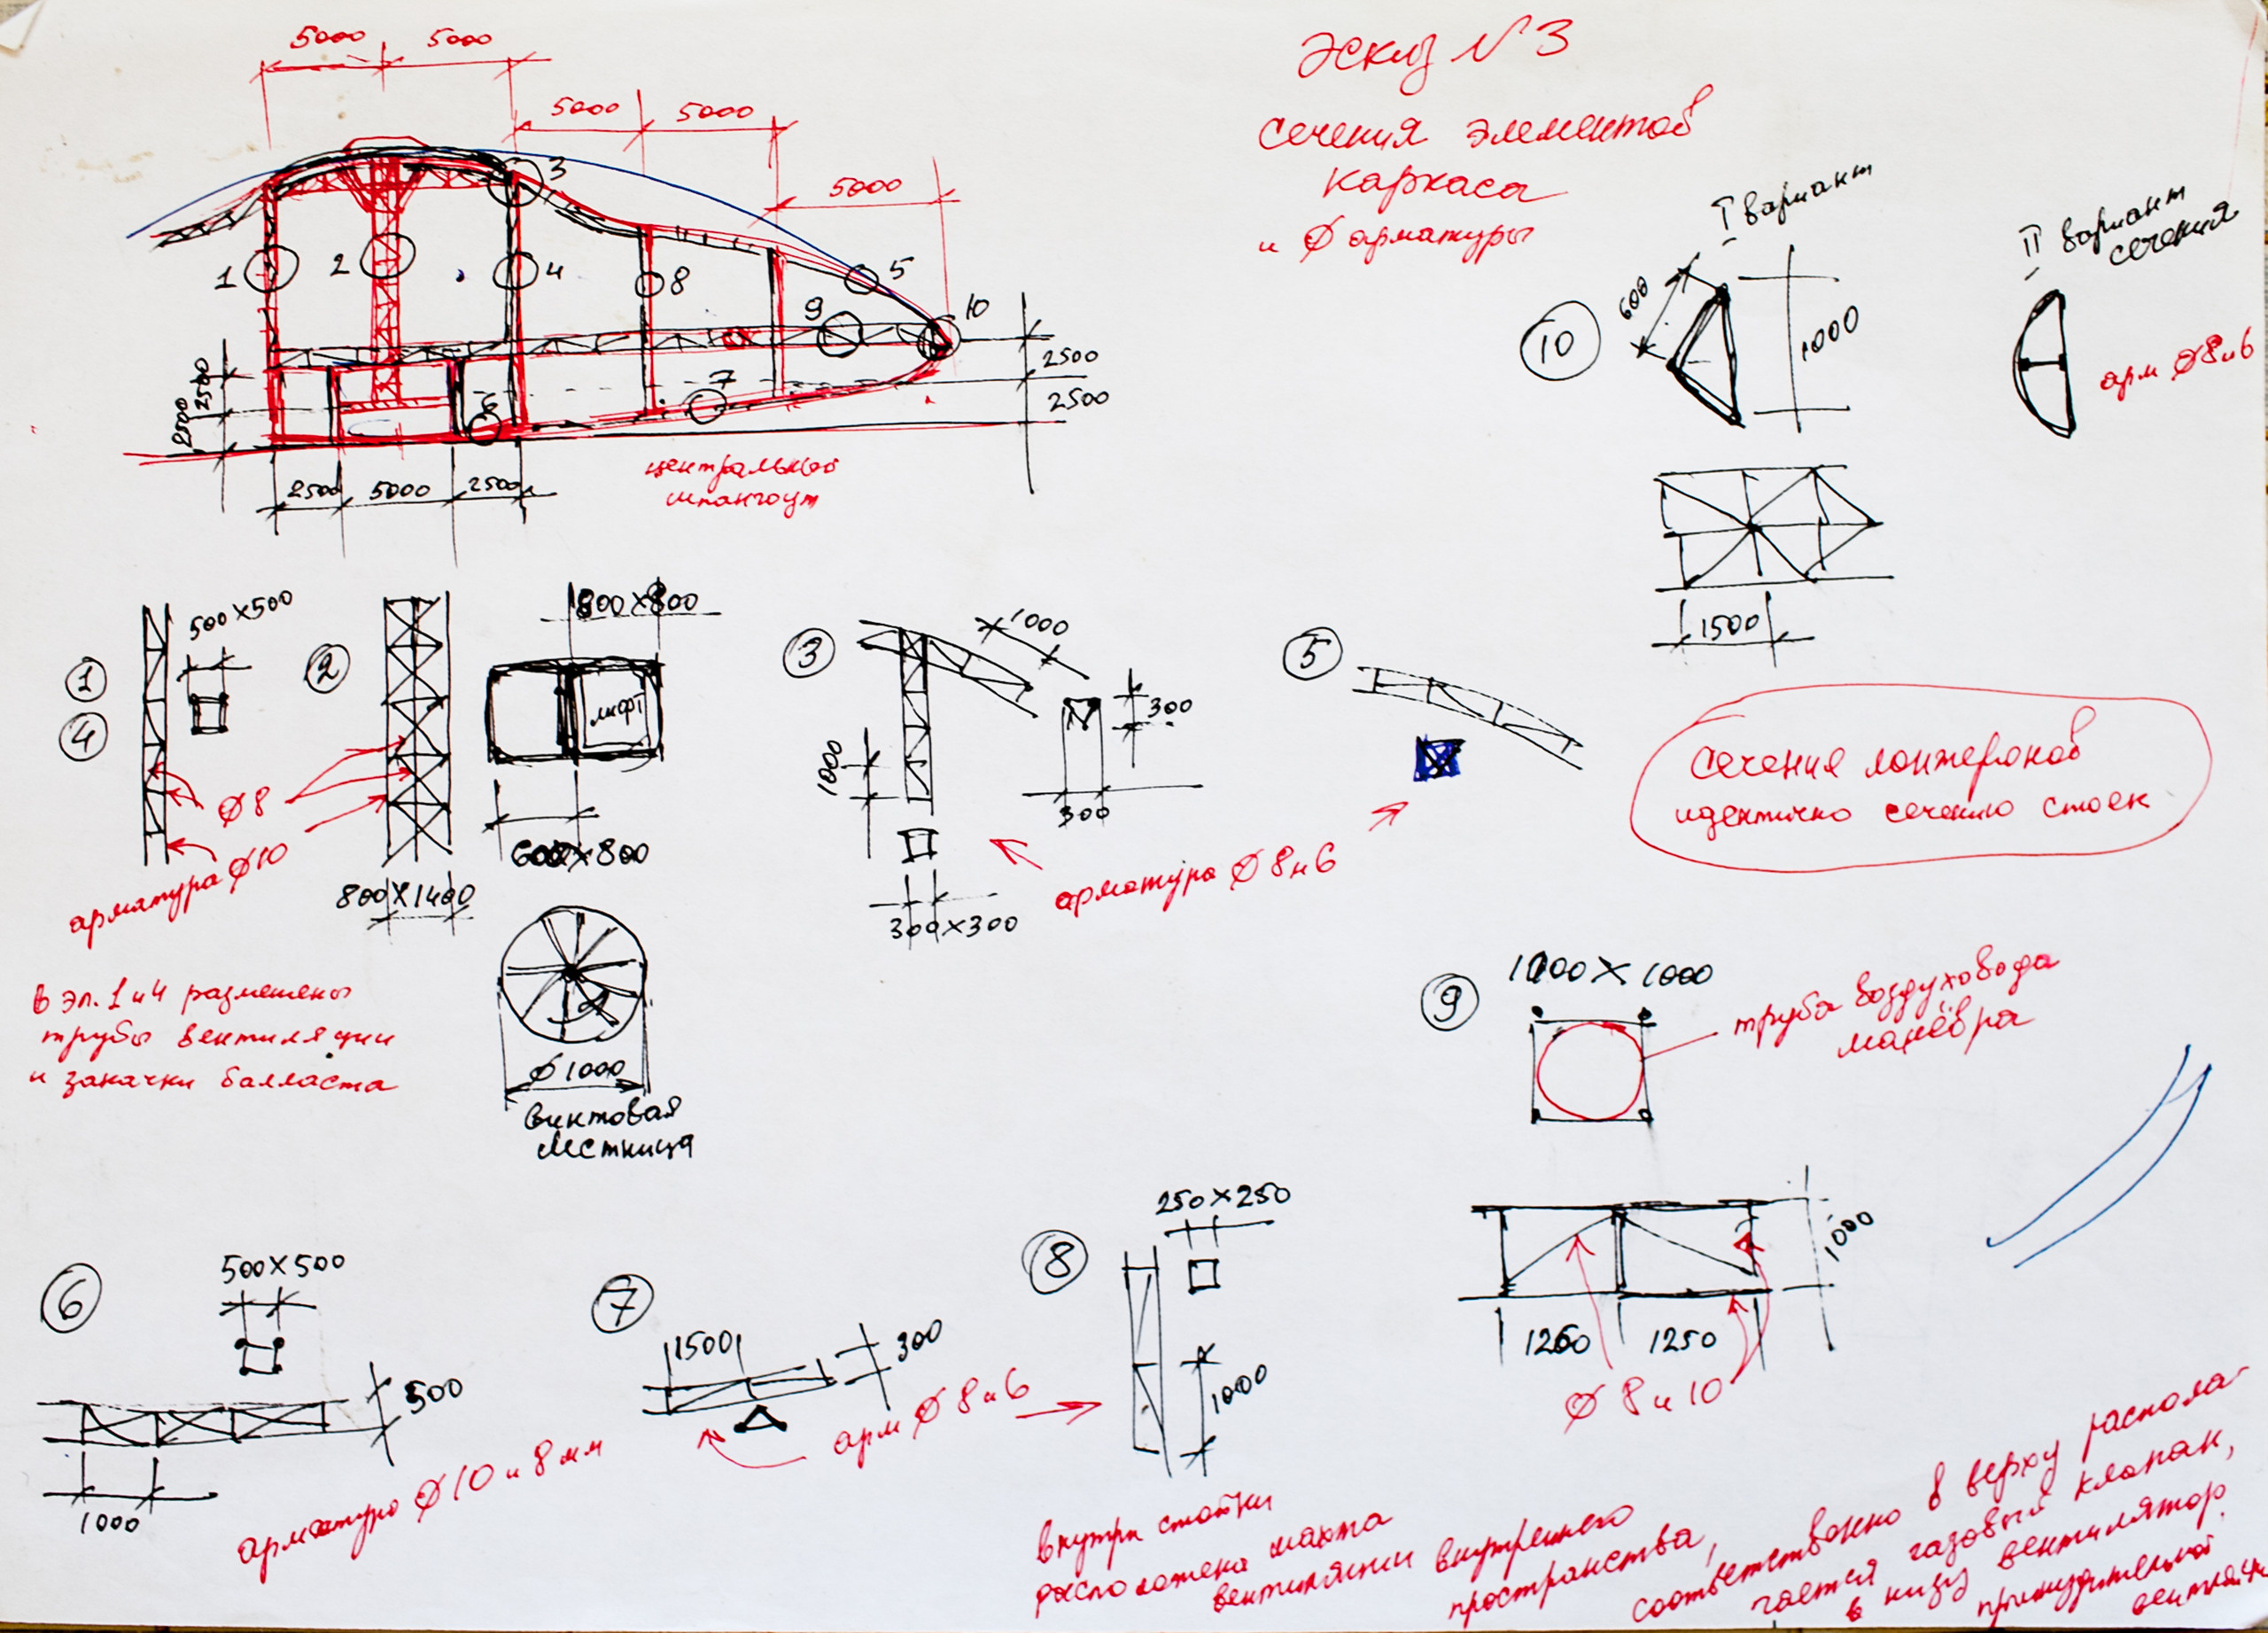 Эскиз №3
сечения элементов
каркаса
и Ø арматуры
5000 5000
5000 5000
5000
3
1 2 4 8 5
9 10
7
6
2500
2500
2500
2500
2500 5000 2500
центральный
шпангоут
I вариант
II вариант
сечения
10
600
1000
арм Ø8и6
1500
1
4
500×500
Ø8
арматура Ø10
в эл. 1 и 4 размещены
трубы вентиляции
и закачки балласта
2
800×800
лифт
600×800
800×1400
Ø1000
винтовая
лестница
3
×1000
300
300
1000
300×300
арматура Ø 8и6
5
Сечения лонжеронов
идентично сечению стоек
9
1000×1000
труба воздуховода
манёвра
1000
1250 1250
Ø 8 и 10
6
500×500
500
1000
арматура Ø10 и 8 мм
7
1500
300
арм Ø 8и6
8
250×250
1000
внутри стойки
расположена шахта
вентиляции внутреннего
пространства,
соответственно в верху распола-
гается газовый клапан,
в низу вентилятор
принудительной